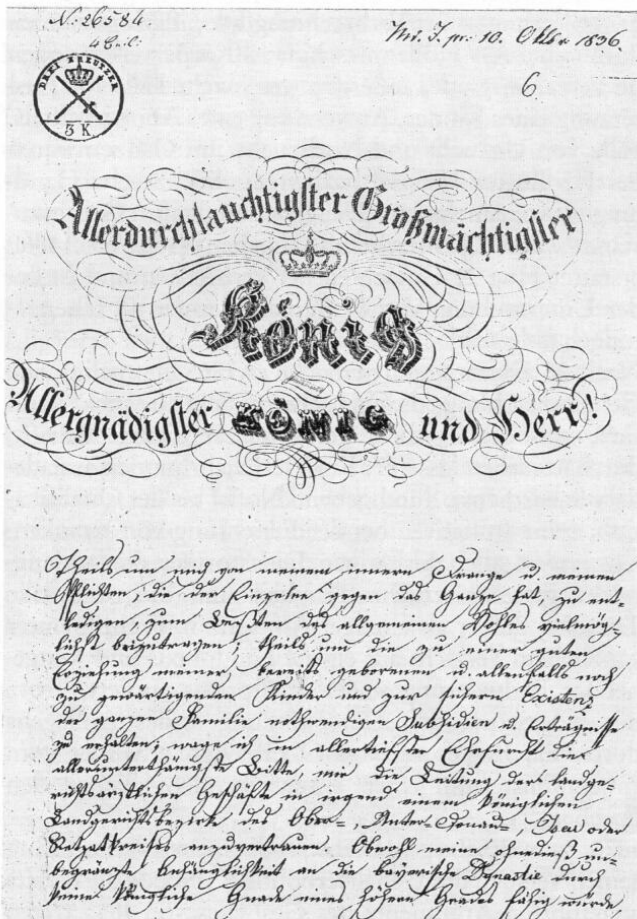 N. 26584
4 Beil.
Pr. J. pr. 10. Oktbr 1836.
6
DREI KREUZER
3 K
Allerdurchlauchtigster Großmächtigster
König
Allergnädigster KÖNIG und Herr!
Theils um mich von meinem innern Drange u. meinen
Pflichten, die der Einzelne gegen das Ganze hat, zu ent-
ledigen, zum Besten des allgemeinen Wohles vielmög-
lichst beizutragen; theils um die zu einer guten
Erziehung meiner, bereits geborenen u. allenfalls noch
zu gewärtigenden Kinder und zur sichern Existenz
der ganzen Familie nothwendigen Subsidien u. Erträgnisse
zu erhalten; wage ich in allertiefster Ehrfurcht die
allerunterthänigste Bitte, mir die Leitung der landge-
richtsärztlichen Geschäfte in irgend einem königlichen
Landgerichtsbezirke des Ober-, Unter-Donau-, Isar oder
Rezatkreises anzuvertrauen. Obwohl meine ohnedieß un-
begränzte Anhänglichkeit an die bayerische Dynastie durch
keine Königliche Gnade eines höhern Grades fähig würde,